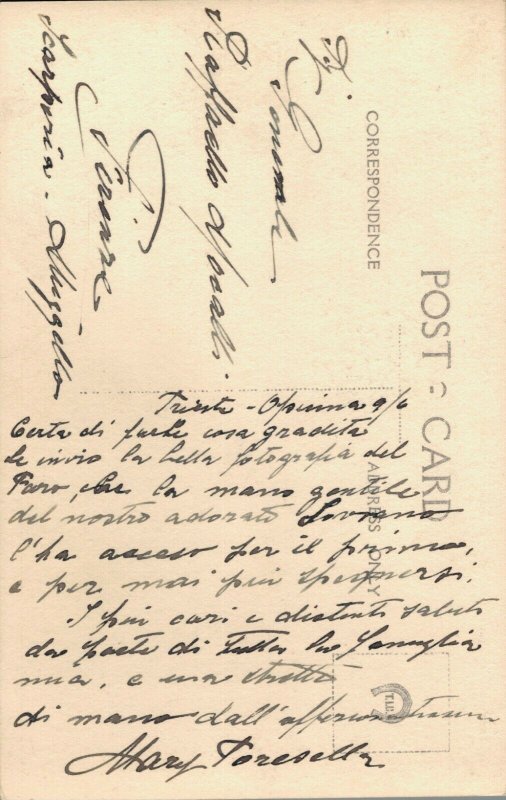 POST CARD
CORRESPONDENCE
ADDRESS ONLY
Generale
Raffaello
Firenze
Scarperia - Mugello
Trieste - Opicina 9/6
Certa di farLe cosa gradita
Le invio la bella fotografia del
Faro, che la mano gentile
del nostro adorato Sovrano
l'ha acceso per il primo,
e per mai più spegnersi.
I più cari e distinti saluti
da parte di tutta la famiglia
mia, e una stretta
di mano dall'
Mary Toresella